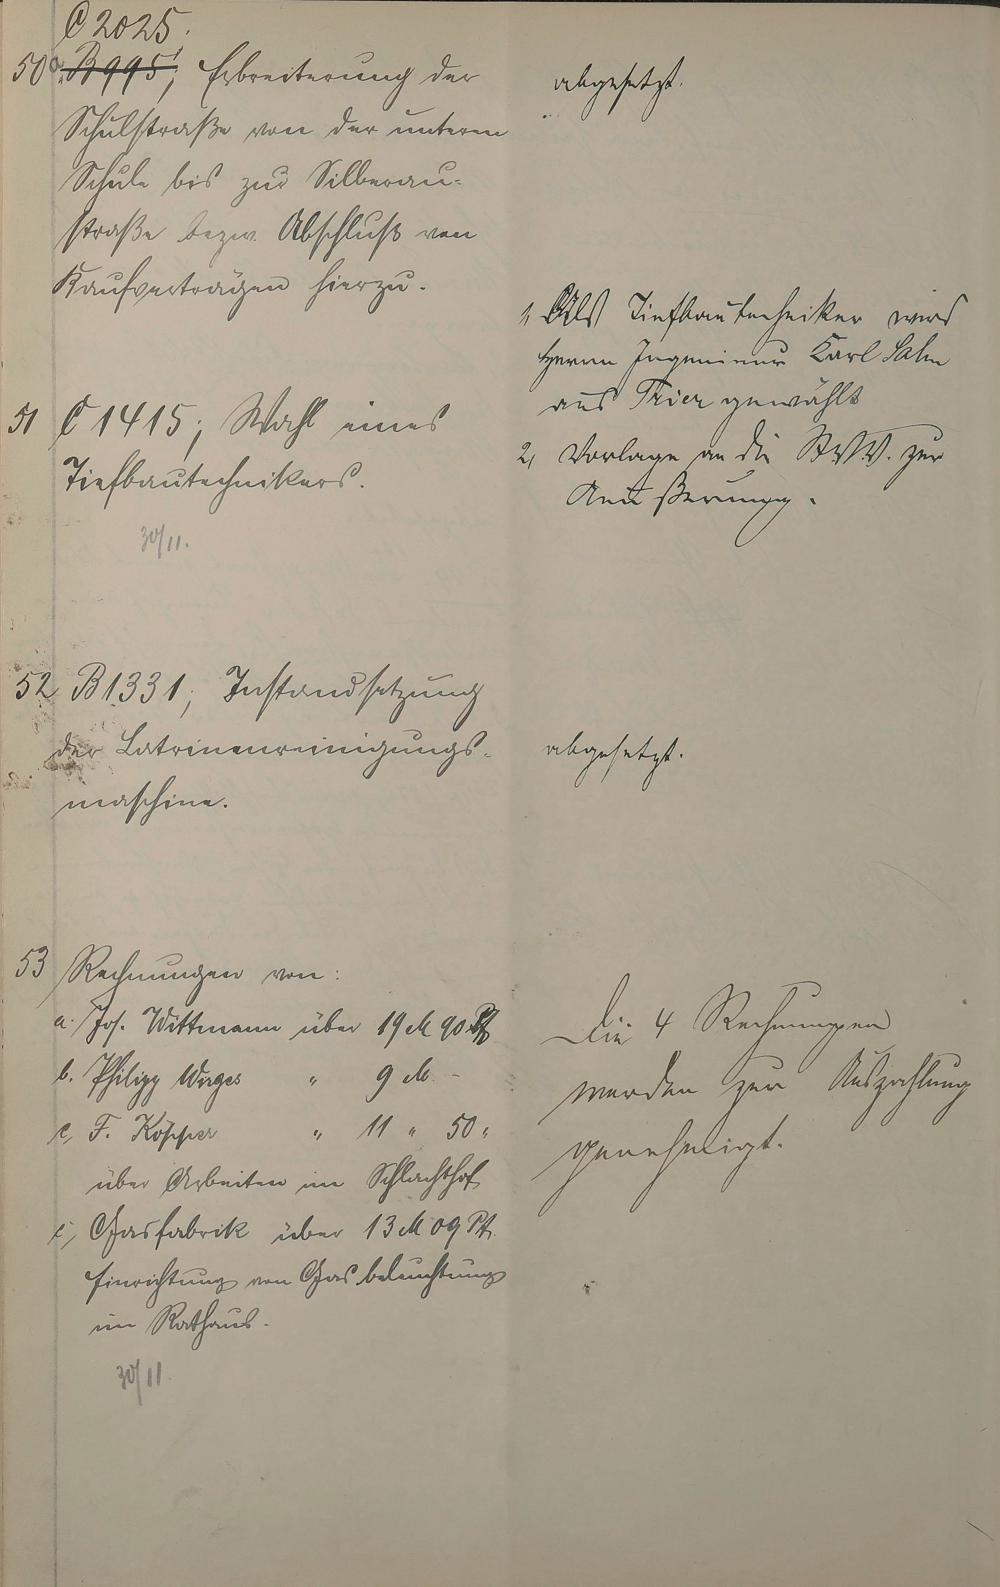 C 2025.
50a. B 995; Erbreiterung der
Schulstraße von der unteren
Schule bis zur Silberau-
straße bezw. Abschluß von
Kaufverträgen hierzu.
abgesetzt.
51 C 1415; Wahl eines
Tiefbautechnikers.
30/11.
1, Als Tiefbautechniker wird
Herrn Ingenieur Karl Salm
aus Trier gewählt
2, Vorlage an die St.V.V. zur
Äußerung.
52 B 1331; Instandsetzung
der Latrinenreinigungs-
maschine.
abgesetzt.
53 Rechnungen von:
a. Jos. Wittmann über 19 M 90 Pf
b. Philipp Wirges " 9 M. -
c, F. Köpper " 11 " 50 "
über Arbeiten im Schlachthof
Gasfabrik über 13 M 09 Pf.
Einrichtung von Gasbeleuchtung
im Rathaus.
30/11.
Die 4 Rechnungen
werden zur Auszahlung
genehmigt.